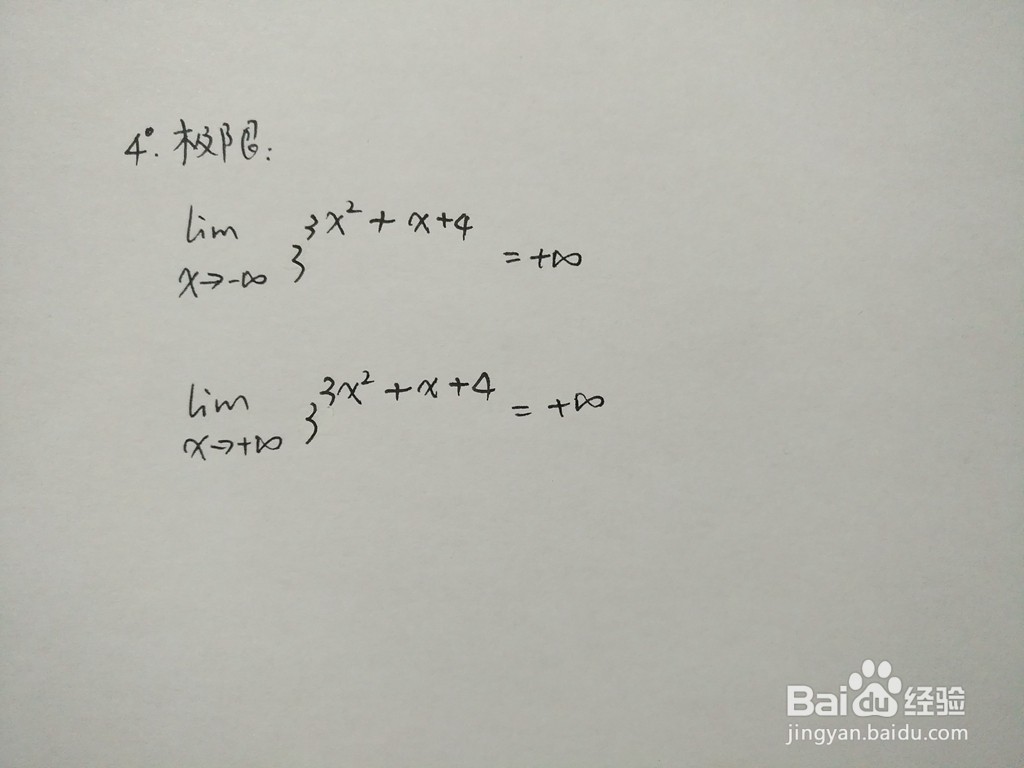 4°. 极限:
lim x→-∞ 3^{3x² + x+4} = +∞
lim x→+∞ 3^{3x² + x+4} = +∞
Bai du 经验
jingyan.baidu.com